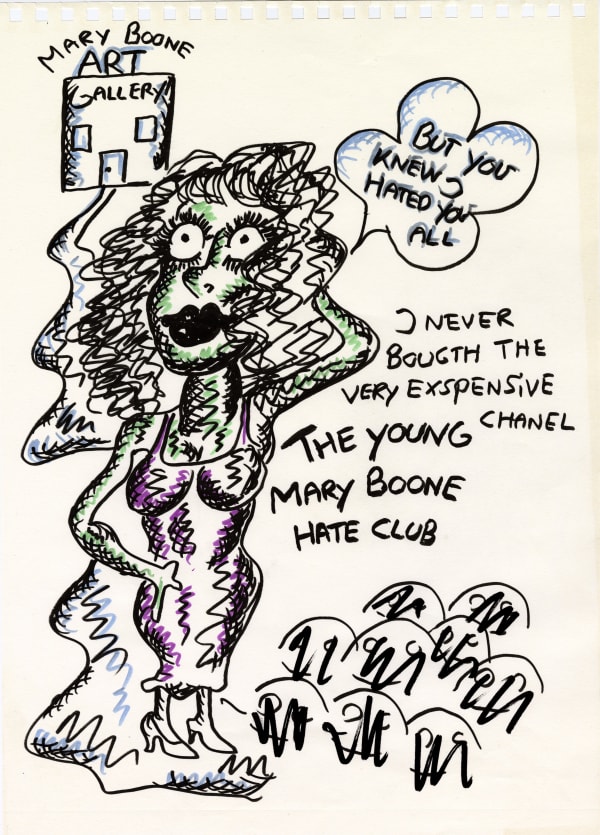 MARY BOONE
ART
GALLERY
BUT YOU
KNEW I
HATED YOU
ALL
I NEVER
BOUGTH THE
VERY EXSPENSIVE
CHANEL
THE YOUNG
MARY BOONE
HATE CLUB